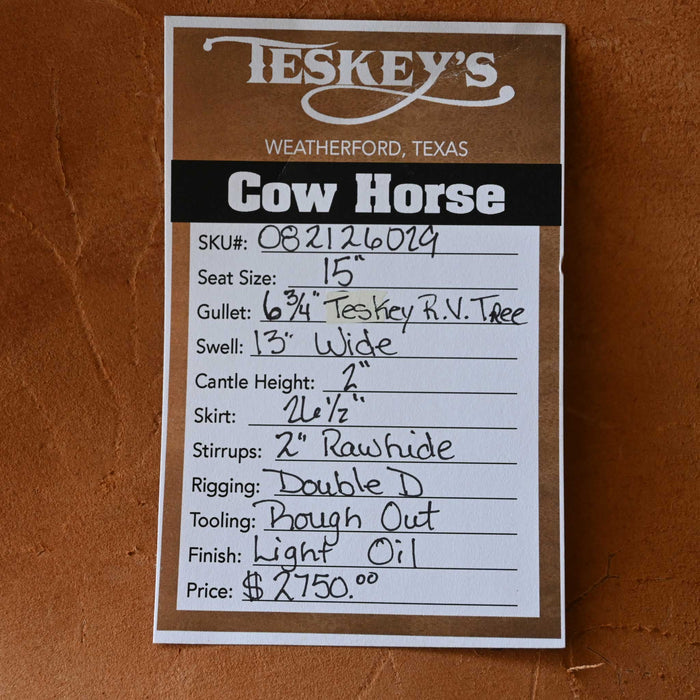 TESKEY'S
WEATHERFORD, TEXAS
Cow Horse
SKU#: 082126029
Seat Size: 15"
Gullet: 6 3/4" Teskey R.V. Tree
Swell: 13" Wide
Cantle Height: 2"
Skirt: 26 1/2"
Stirrups: 2" Rawhide
Rigging: Double D
Tooling: Rough Out
Finish: Light Oil
Price: $2750.00